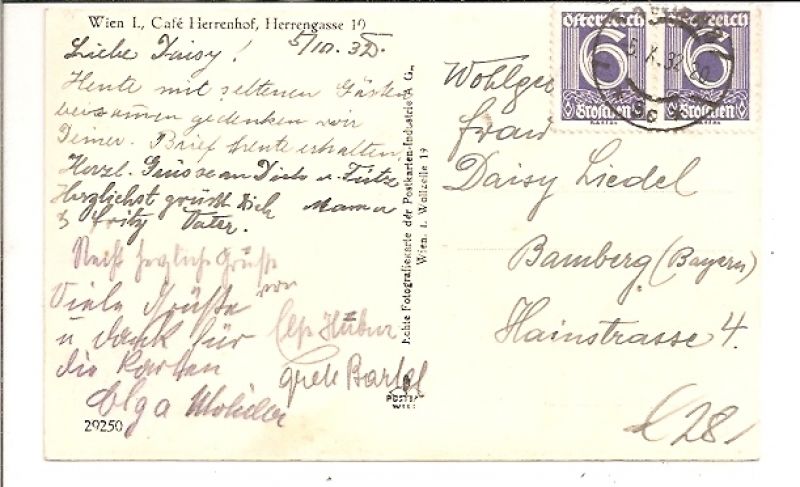 Wien I., Café Herrenhof, Herrengasse 10
Liebe Daisy! 5/10. 32.
Heute mit seltenen Gästen
beisammen gedenken wir
Deiner. Brief heute erhalten.
Herzl. Grüsse an Dich u.
Herzlichst grüßt Dich Mama
Fritz Vater.
herzliche Grüße
von
Viele Grüße
u dank für
die Karten
Olga
Huber
Grete Bartel
29250
Echte Fotografiekarte der Postkarten-Industrie A. G.,
Wien, I. Wollzeile 19
POSTK
WIEN
Österreich
6
Groschen
Österreich
6
Groschen
5. X. 32
Frau
Daisy Liedel
Bamberg (Bayern)
Hainstrasse 4.
28